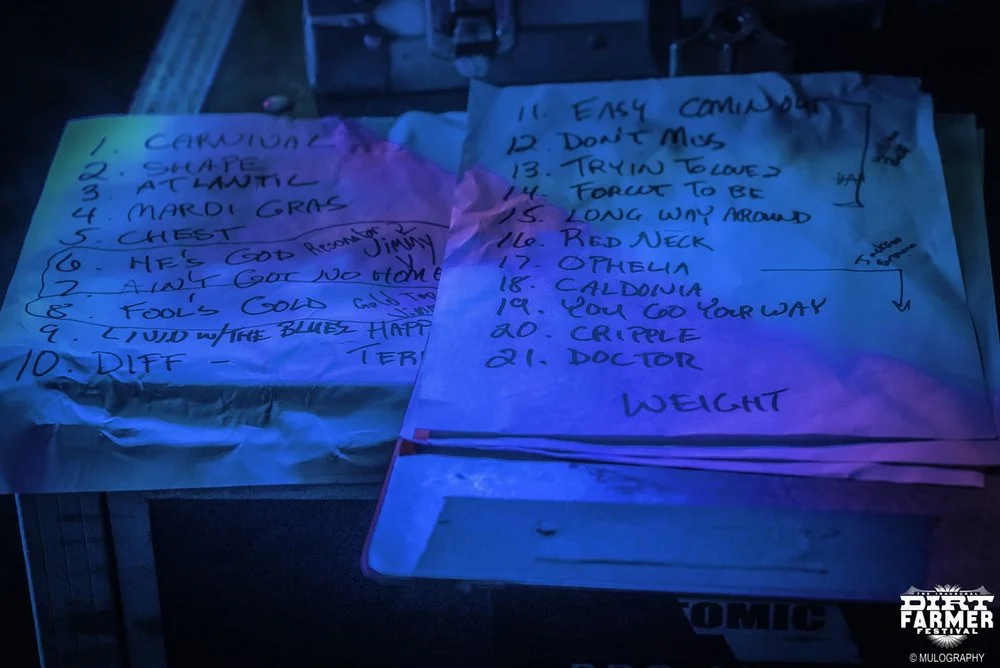 1. CARNIVAL
2. SHAPE
3. ATLANTIC
4. MARDI GRAS
5. CHEST
6. HE'S GOD Resonator Jimmy
7. AIN'T GOT NO HOME
8. FOOL'S GOLD Gold
9. LIVIN W/THE BLUES HAPP
10. DIFF - TERI
11. EASY COMIN OUT
12. DON'T MISS
13. TRYIN TO LOVE 2
14. FORGET TO BE
15. LONG WAY AROUND
16. RED NECK
17. OPHELIA
18. CALDONIA
19. YOU GO YOUR WAY
20. CRIPPLE
21. DOCTOR
WEIGHT
OMIC
THE INAUGURAL
DIRT
FARMER
FESTIVAL
© MULOGRAPHY